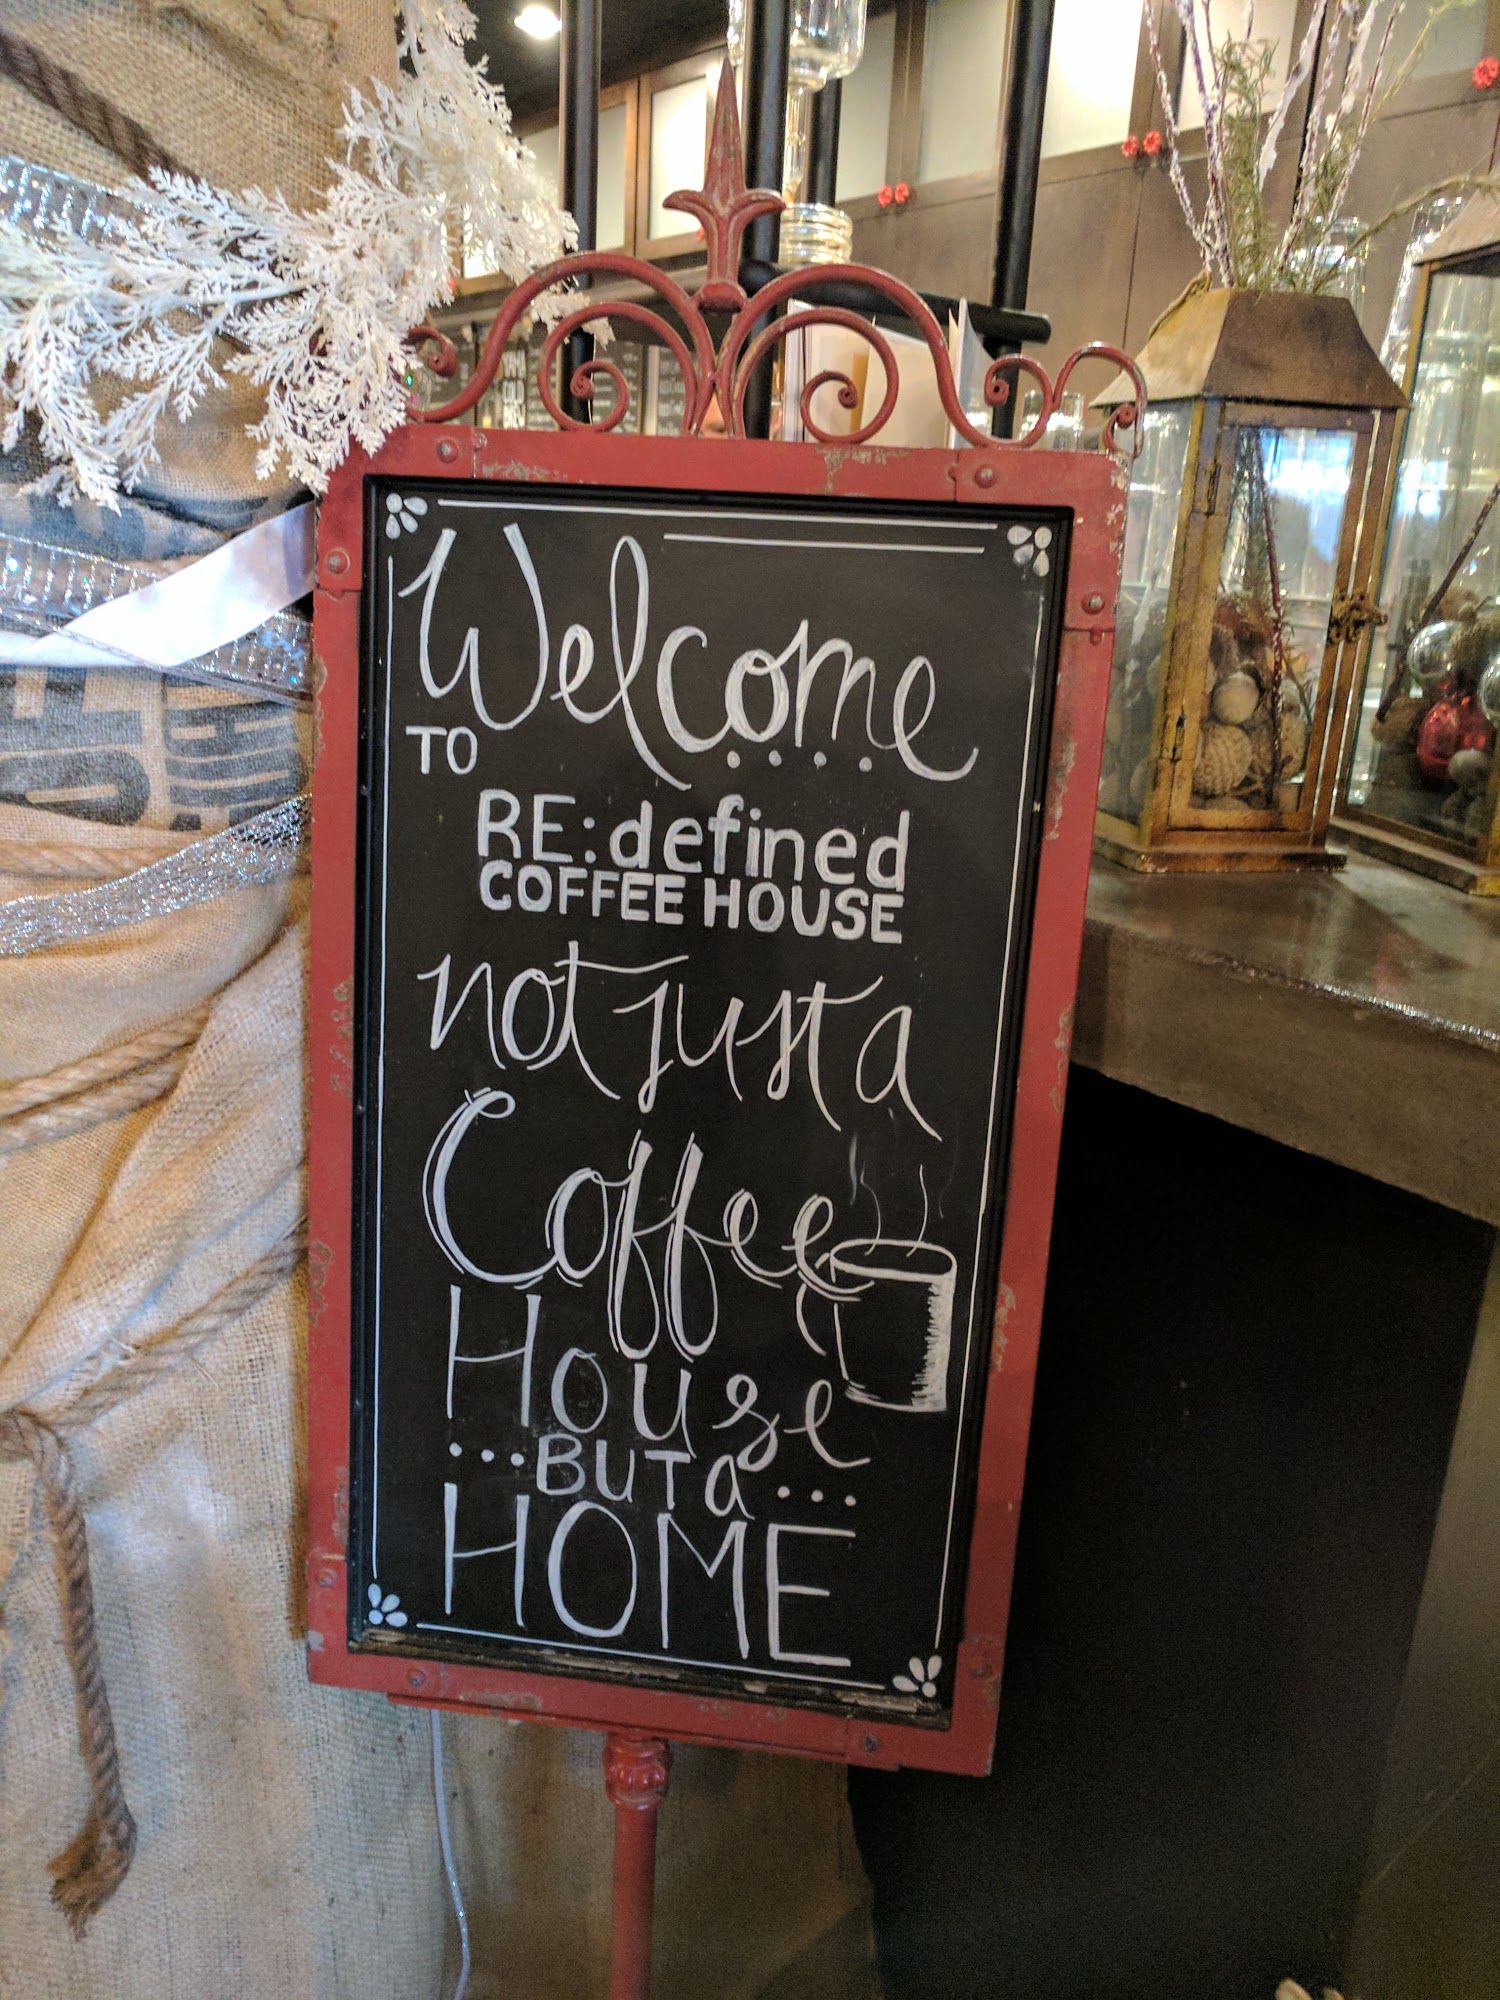 Welcome
TO
RE:defined
COFFEE HOUSE
not just a
Coffee
House
...BUT a...
HOME